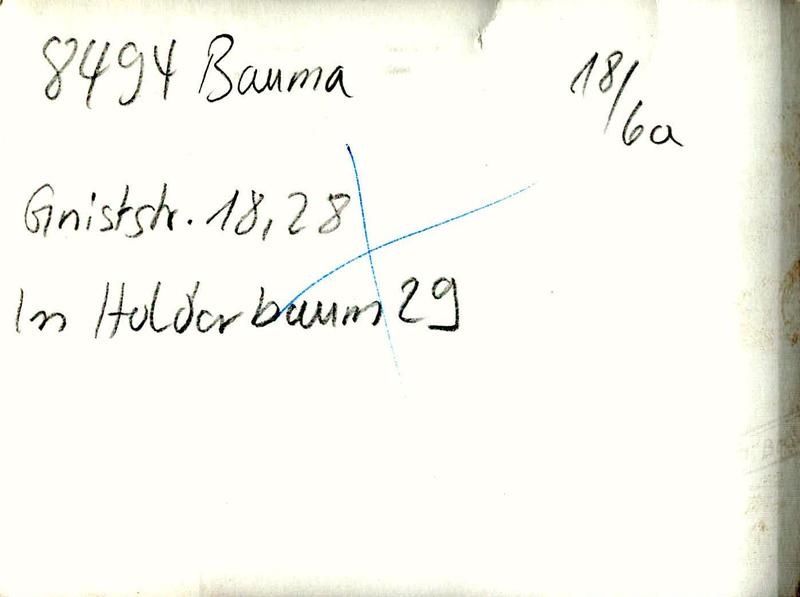 8494 Bauma
18/6a
Gniststr. 18, 28
In Holderbaum 29